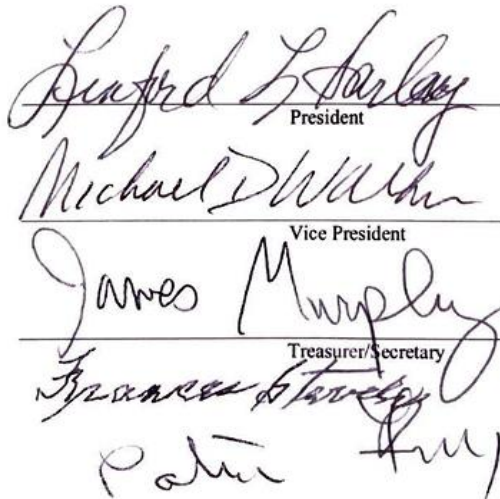 Linford L Harley
President
Michael D Walker
Vice President
James Murphy
Treasurer/Secretary
Frances